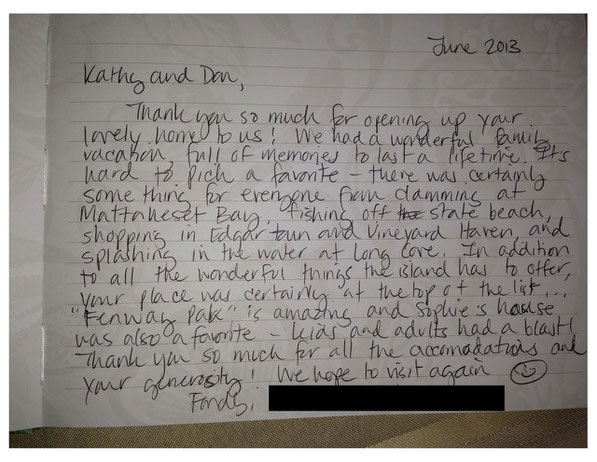 June 2013
Kathy and Dan,
Thank you so much for opening up your
lovely home to us! We had a wonderful family
vacation, full of memories to last a lifetime. Its
hard to pick a favorite - there was certainly
something for everyone from clamming at
Mattakeset Bay, fishing off the state beach,
shopping in Edgartown and Vineyard Haven, and
splashing in the water at Long Cove. In addition
to all the wonderful things the island has to offer,
your place was certainly at the top of the list...
"Fenway Pak" is amazing and Sophie's house
was also a favorite - kids and adults had a blast!
Thank you so much for all the accomodations and
your generosity! We hope to visit again ☺
Fondly,